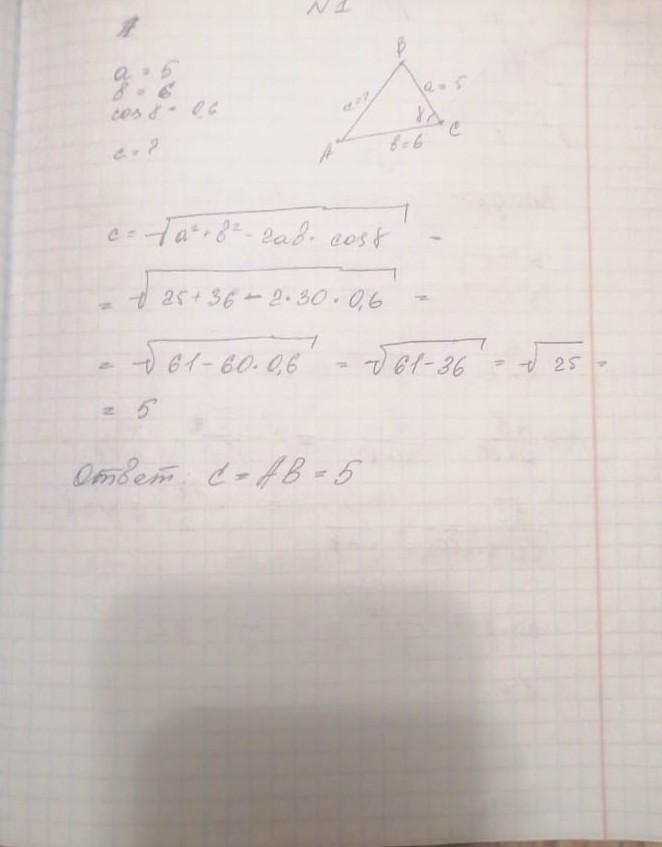 N1
a = 5
в = 6
cos γ = 0,6
c = ?
B
c = ?
a = 5
γ
A
C
в = 6
c = √a² + в² - 2aв · cos γ =
= √25 + 36 - 2 · 30 · 0,6 =
= √61 - 60 · 0,6 = √61 - 36 = √25 =
= 5
Ответ: C = AB = 5